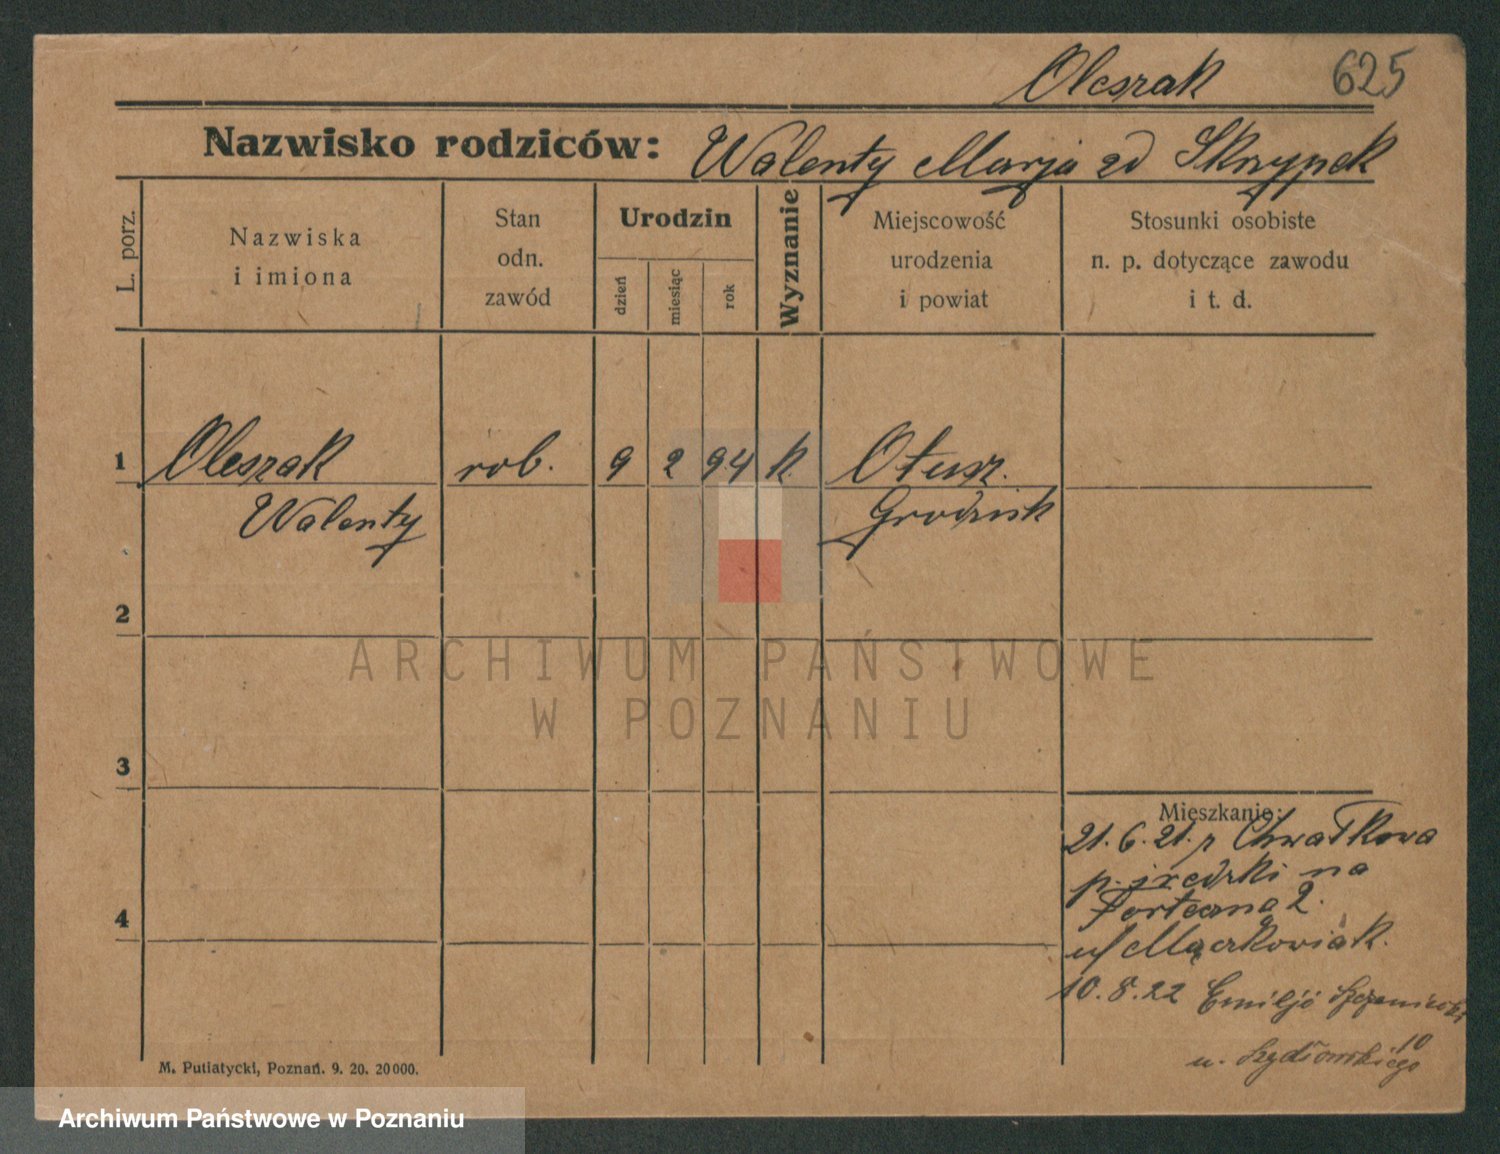 Oleszak 625
Nazwisko rodziców: Walenty Marja zd Skrzypek
L. porz.
Nazwiska
i imiona
Stan
odn.
zawód
Urodzin
dzień
miesiąc
rok
Wyznanie
Miejscowość
urodzenia
i powiat
Stosunki osobiste
n. p. dotyczące zawodu
i t. d.
1 Oleszak rob. 9 2 94 k. Otusz.
Walenty Grodzisk
2
ARCHIWUM PAŃSTWOWE
W POZNANIU
3
Mieszkanie:
21.6.21. z Chwałkowa
p. średzki na
Forteczna 2.
u/ Mączkowiak.
4
10.8.22 Emilji
u. Szydłowskiego 10
M. Putiatycki, Poznań. 9. 20. 20000.
Archiwum Państwowe w Poznaniu